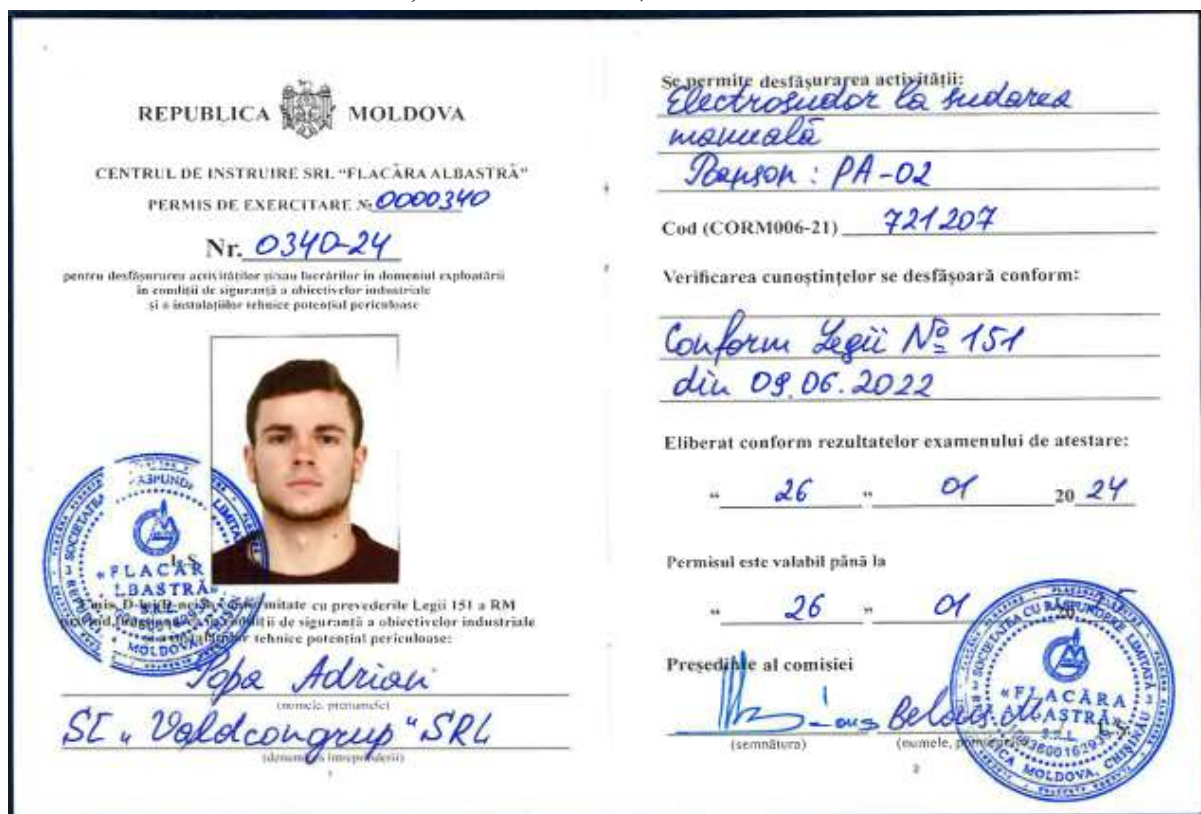 REPUBLICA MOLDOVA
CENTRUL DE INSTRUIRE SRL "FLACĂRA ALBASTRĂ"
PERMIS DE EXERCITARE № 0000340
Nr. 0340-24
pentru desfășurarea activităților și/sau lucrărilor în domeniul exploatării
în condiții de siguranță a obiectivelor industriale
si a instalațiilor tehnice potențial periculoase
L.S.
cu prevederile Legii 151 a RM
de siguranță a obiectivelor industriale
tehnice potențial periculoase:
Popa Adrian
(numele, prenumele)
SC "Valdcongrup" SRL
(denumirea întreprinderii)
1
Se permite desfășurarea activității:
Electrosudor la sudarea
manuală
: PA-02
Cod (CORM006-21) 721207
Verificarea cunoștințelor se desfășoară conform:
Conform Legii № 151
din 09.06.2022
Eliberat conform rezultatelor examenului de atestare:
" 26 " 01 20 24
Permisul este valabil până la
" 26 " 01
Președinte al comisiei
Belous M
(semnătura) (numele,
2
SOCIETATEA CU RĂSPUNDERE LIMITATĂ
«FLACĂRA
ALBASTRĂ»
S.R.L.
MOLDOVA, CHIȘINĂU